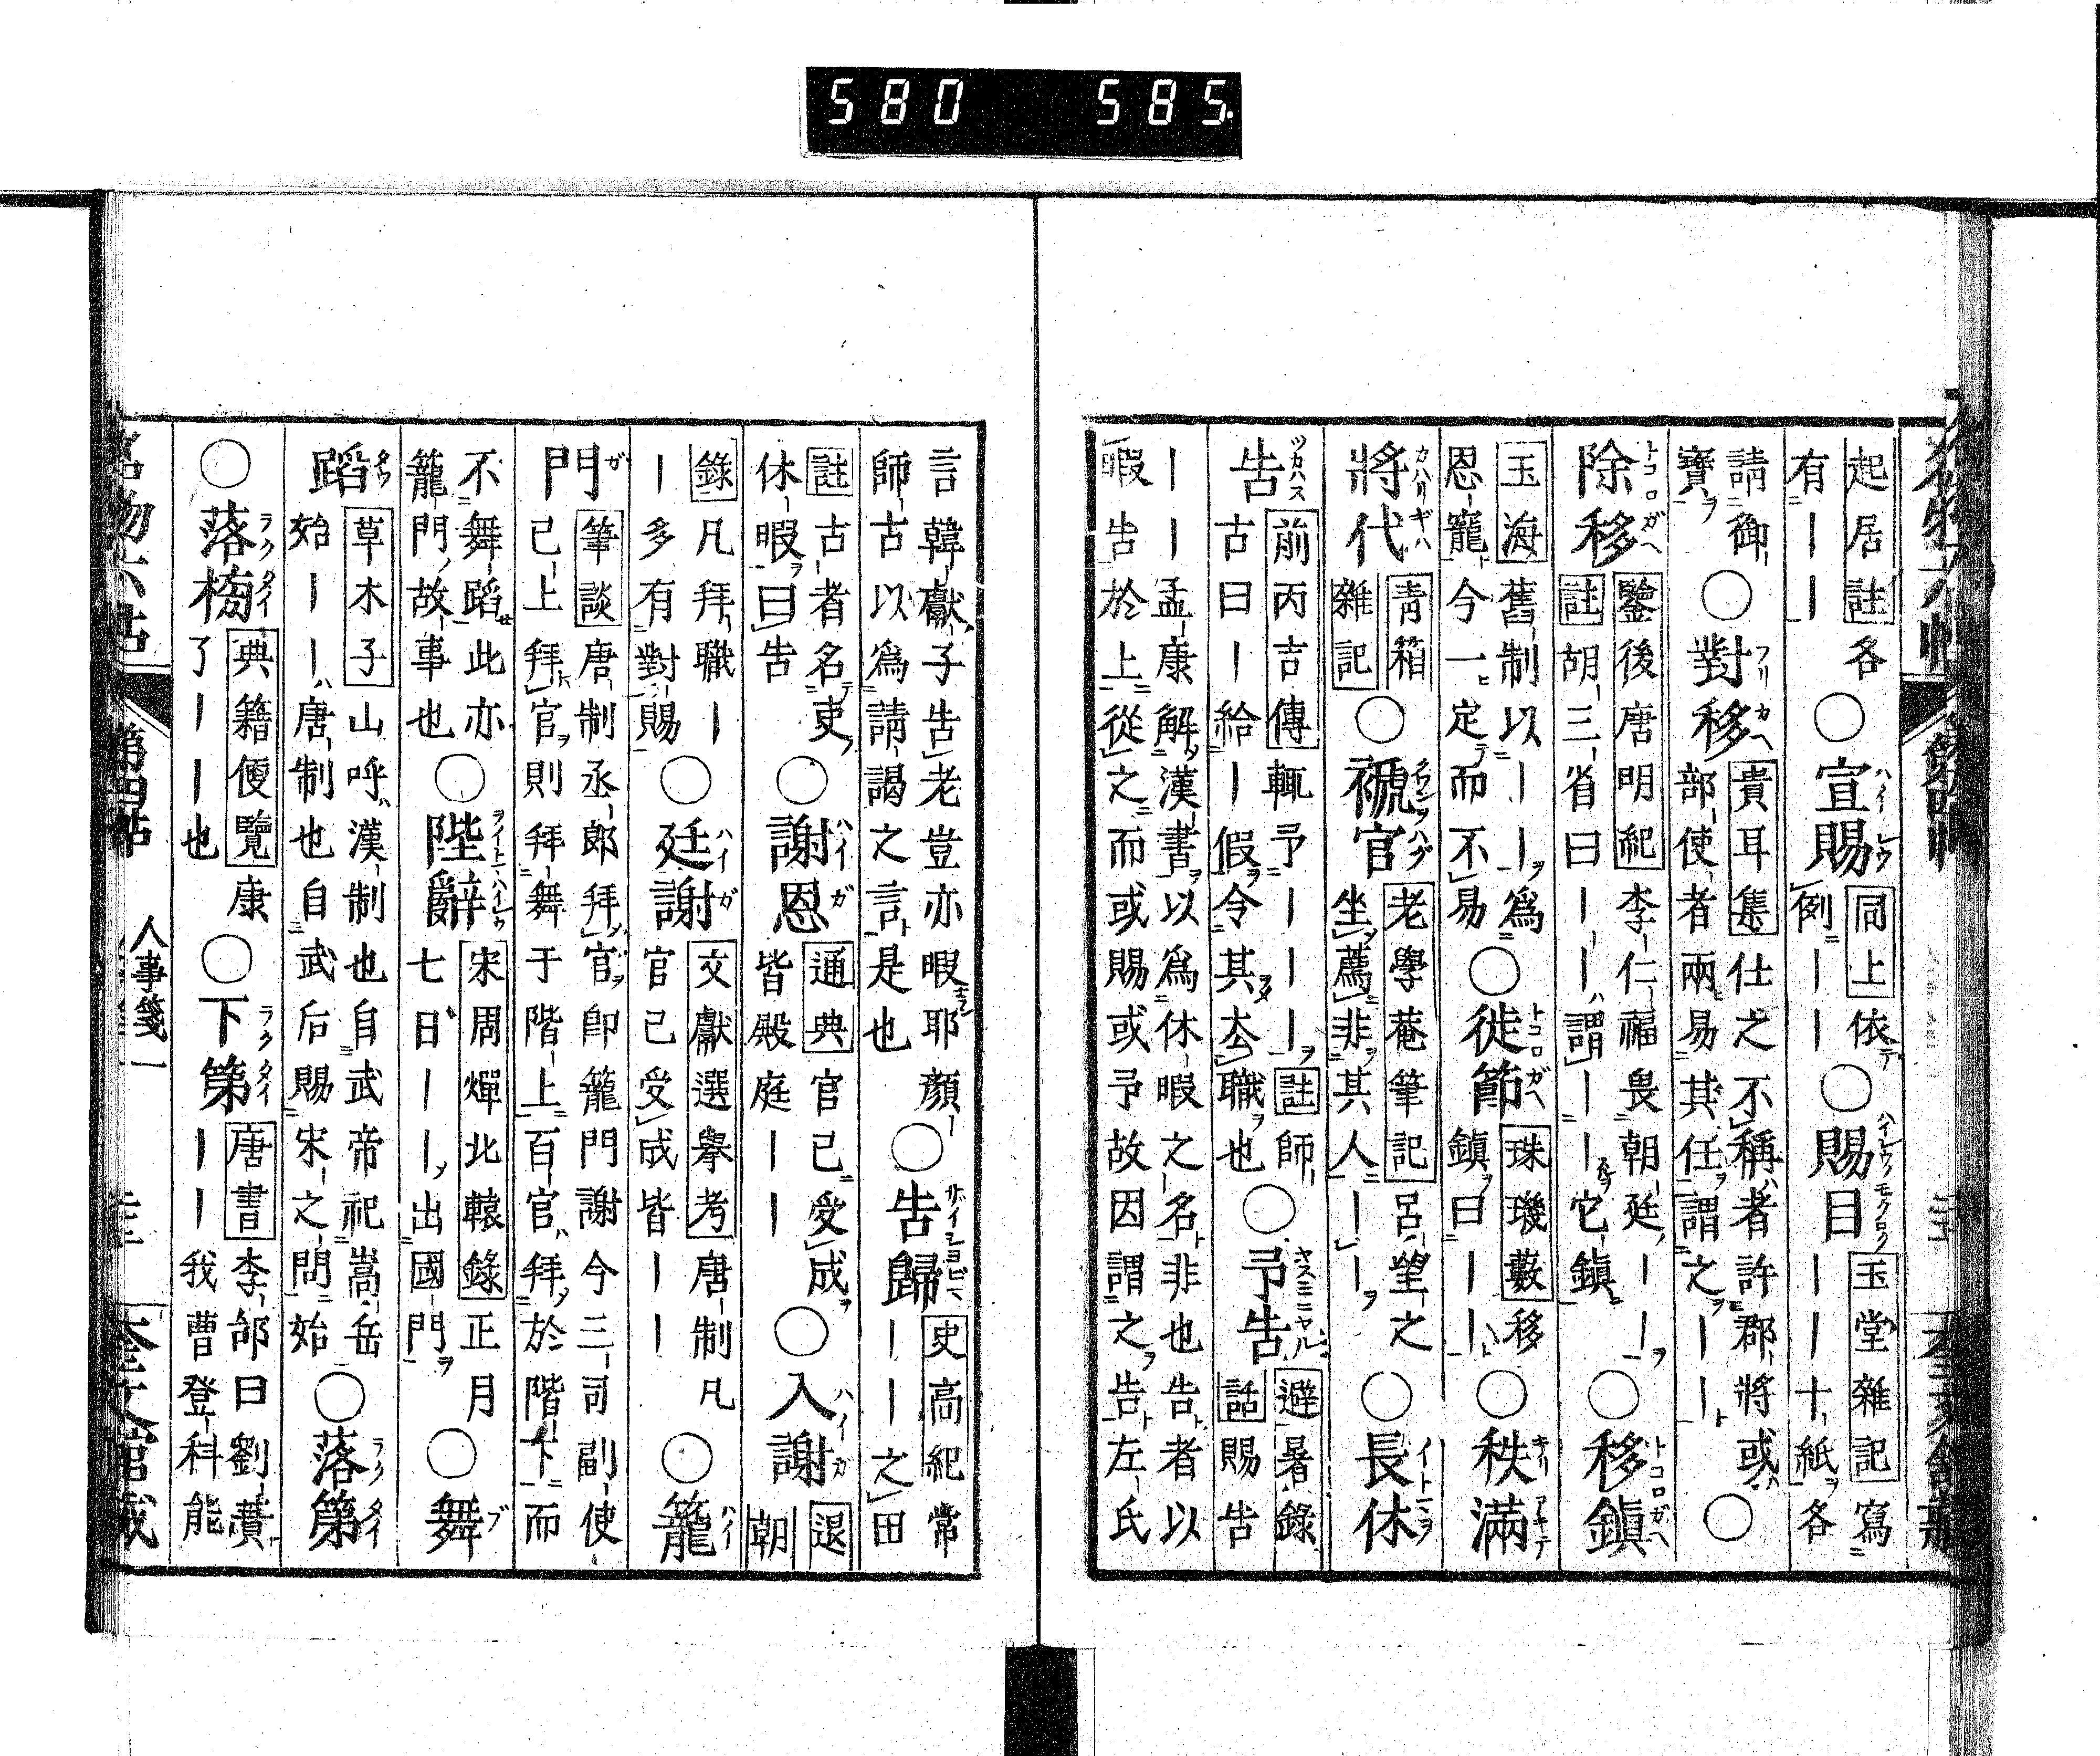 580 585
起居註各
有｜｜
○宣賜
同上依
例｜｜
○賜目
玉堂雜記寫
｜｜十紙各
請御
寶
○對移
貴耳集仕之不稱者許郡將或
部使者兩易其任謂之｜｜
○
除移
鑒後唐明紀李仁福畏朝廷｜｜
註胡三省曰｜｜謂｜｜它鎮
○移鎮
玉海舊制以｜｜為
恩寵今一定而不易
○徙節
珠璣藪移
鎮曰｜｜
○秩滿
將代
青箱
雜記
○褫官
老學菴筆記呂望之
坐薦非其人｜｜
○長休
告
前丙吉傳輒予｜｜｜註師
古曰｜給｜假令其去職也
○予告
避暑錄
話賜告
｜｜孟康解漢書以為休暇之名非也告者以
暇告於上從之而或賜或予故因謂之告左氏
言韓獻子告老豈亦暇耶顏
師古以為請謁之言是也
○告歸
史高紀常
｜｜之田
註古者名吏
休暇曰告
○謝恩
通典官已受成
皆殿庭｜｜
○入謝
退
朝
錄凡拜職｜
｜多有對賜
○廷謝
文獻選舉考唐制凡
官已受成皆｜｜
○籠
門
筆談唐制丞郎拜官即籠門謝今三司副使
已上拜官則拜舞于階上百官拜於階下而
不舞蹈此亦
籠門故事也
○陛辭
宋周煇北轅錄正月
七日｜｜出國門
○舞
蹈
草木子山呼漢制也自武帝祀嵩岳
始｜｜唐制也自武后賜宋之問始
○落第
○落榜
典籍便覽康
了｜｜也
○下第
唐書李郃曰劉蕡
｜｜我曹登科能
名物六帖
第四帖
人事箋一
奎文館藏